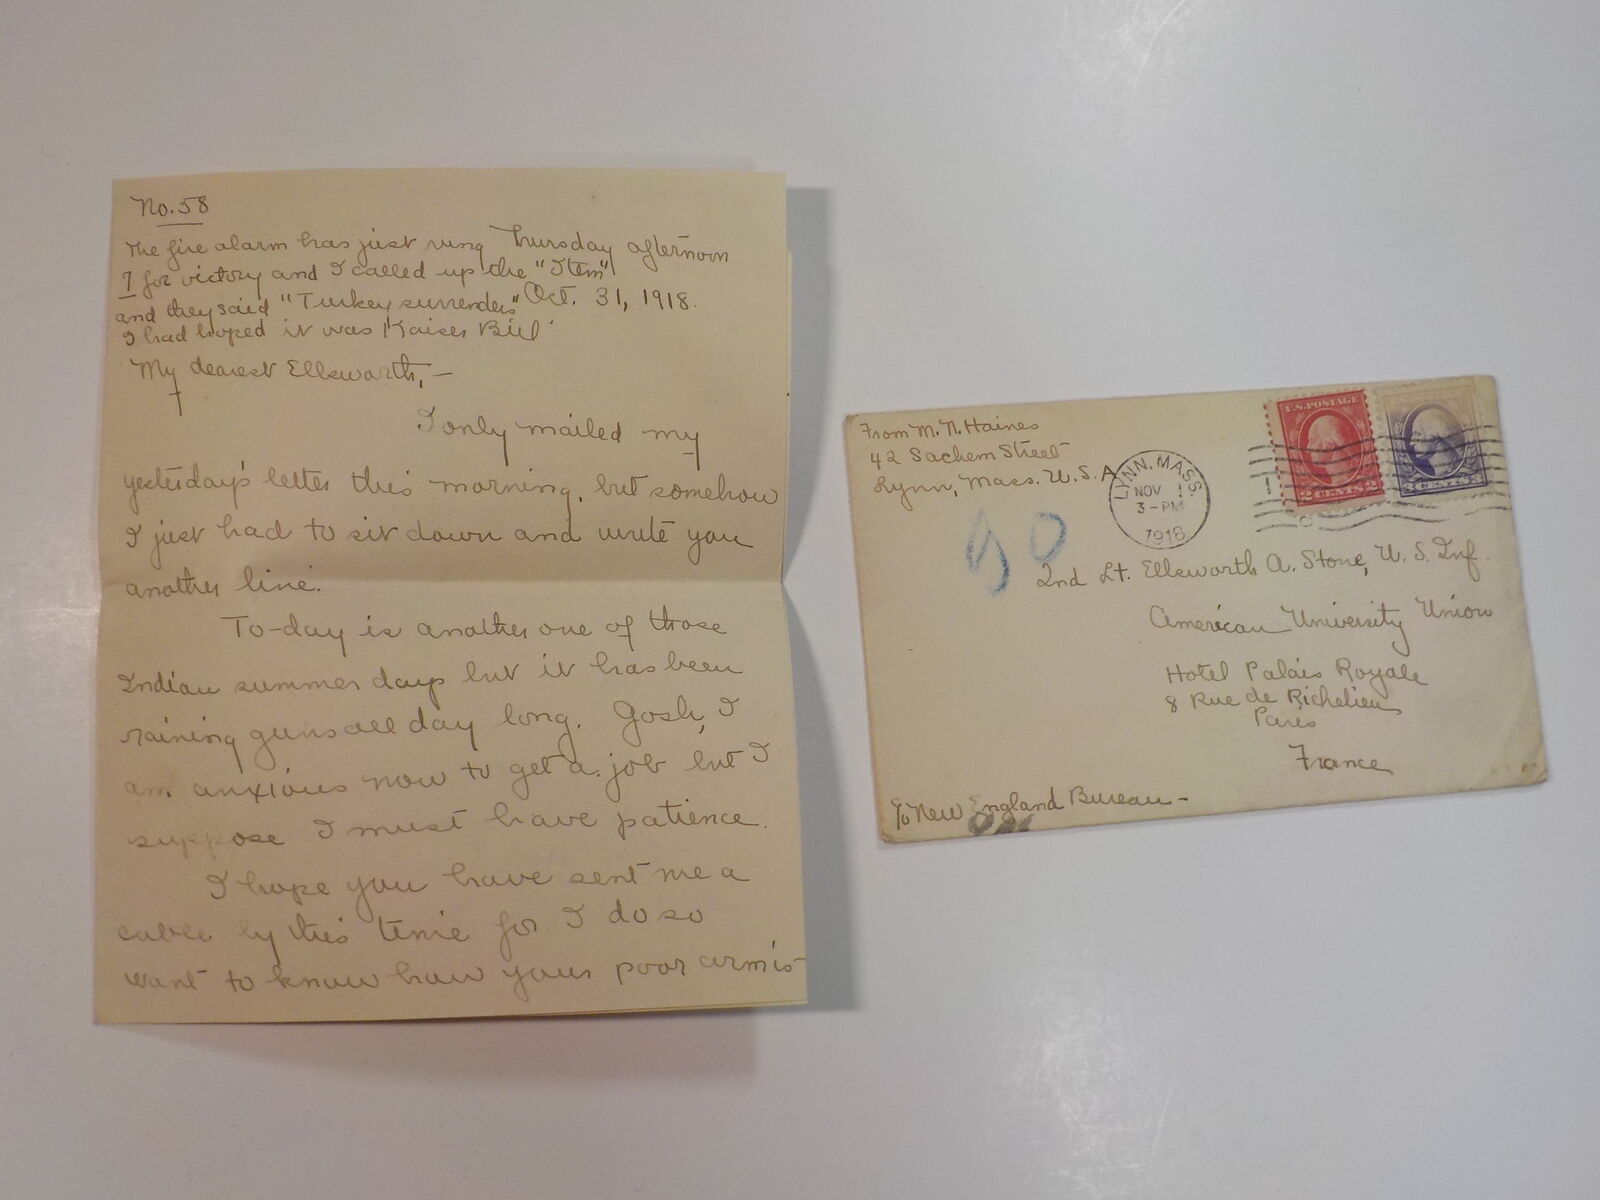 No. 58
The fire alarm has just rung
7 for victory and I called up the "Item"
and they said "Turkey surrenders"
I had hoped it was Kaiser Bill
Thursday afternoon
Oct. 31, 1918.
My dearest Ellsworth, —
I only mailed my
yesterday's letter this morning, but somehow
I just had to sit down and write you
another line.
To-day is another one of those
Indian summer days but it has been
raining guns all day long. Gosh, I
am anxious now to get a job but I
suppose I must have patience.
I hope you have sent me a
cable by this time for I do so
want to know how your poor arm is
From M. N. Haines
42 Sachem Street
Lynn, Mass. U. S. A
LYNN, MASS.
NOV 1
3 - PM
1918
U.S. POSTAGE
2 CENTS 2
3 CENTS 3
50
2nd Lt. Ellsworth A. Stone, U. S. Inf.
American University Union
Hotel Palais Royale
8 Rue de Richelieu
Paris
France
c/o New England Bureau -